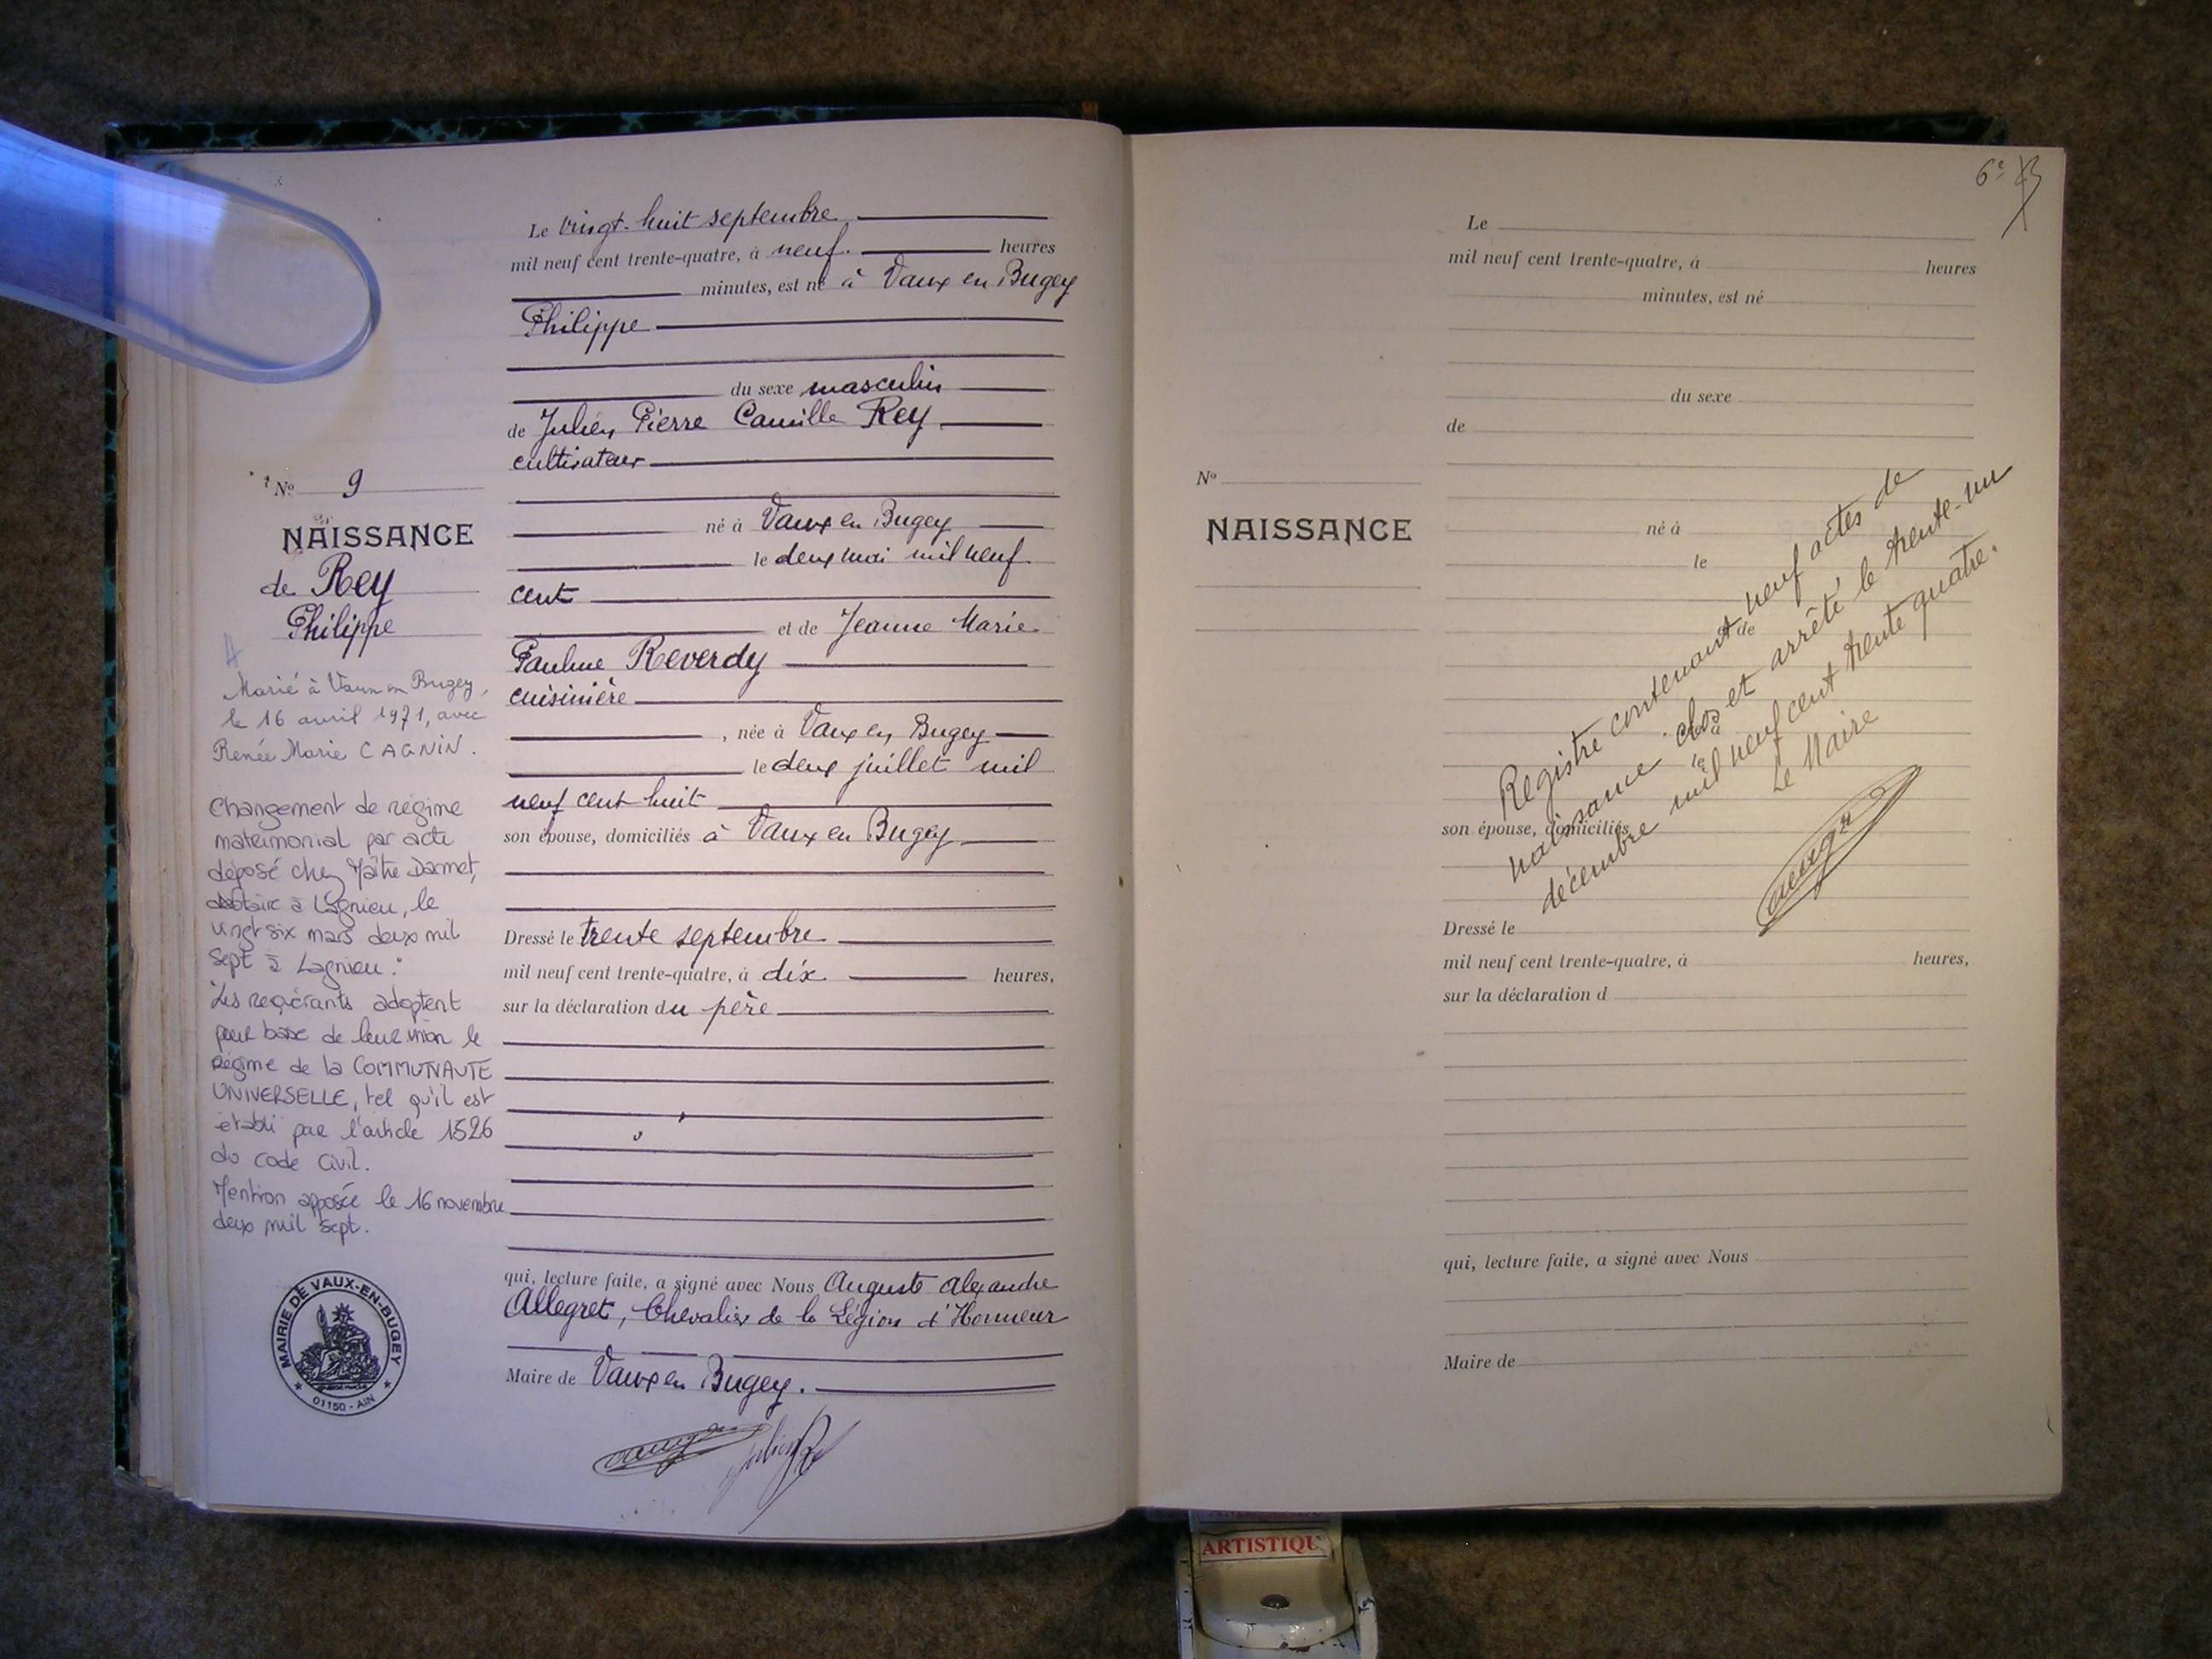 Le vingt-huit septembre
mil neuf cent trente-quatre, à neuf heures
minutes, est né à Vaux en Bugey
Philippe
du sexe masculin
de Julien Pierre Camille Rey
cultivateur
né à Vaux en Bugey
le deux mai mil neuf
cent
et de Jeanne Marie
Pauline Reverdy
cuisinière
, née à Vaux en Bugey
le deux juillet mil
neuf cent huit
son épouse, domiciliés à Vaux en Bugey
Dressé le trente septembre
mil neuf cent trente-quatre, à dix heures,
sur la déclaration du père
qui, lecture faite, a signé avec Nous Auguste Alexandre
Allegret, Chevalier de la Légion d'Honneur
Maire de Vaux en Bugey.
Julien Rey
No 9
NAISSANCE
de Rey
Philippe
Marié à Vaux en Bugey,
le 16 avril 1971, avec
Renée Marie CAGNIN.
Changement de régime
matrimonial par acte
déposé chez Maître Darmet,
notaire à Lagnieu, le
vingt six mars deux mil
sept à Lagnieu :
"Les requérants adoptent
pour base de leur union le
Régime de la COMMUNAUTE
UNIVERSELLE, tel qu'il est
établi par l'article 1526
du code civil.
Mention apposée le 16 novembre
deux mil sept.
MAIRIE DE VAUX-EN-BUGEY
01150 - AIN
6e
Le
mil neuf cent trente-quatre, à heures
minutes, est né
du sexe
de
No
NAISSANCE
né à
le
et de
née à
le
son épouse, domiciliés
Registre contenant neuf actes de
naissance clos et arrêté le trente-un
décembre mil neuf cent trente quatre.
Le Maire
Dressé le
mil neuf cent trente-quatre, à heures,
sur la déclaration d
qui, lecture faite, a signé avec Nous
Maire de
ARTISTIQU